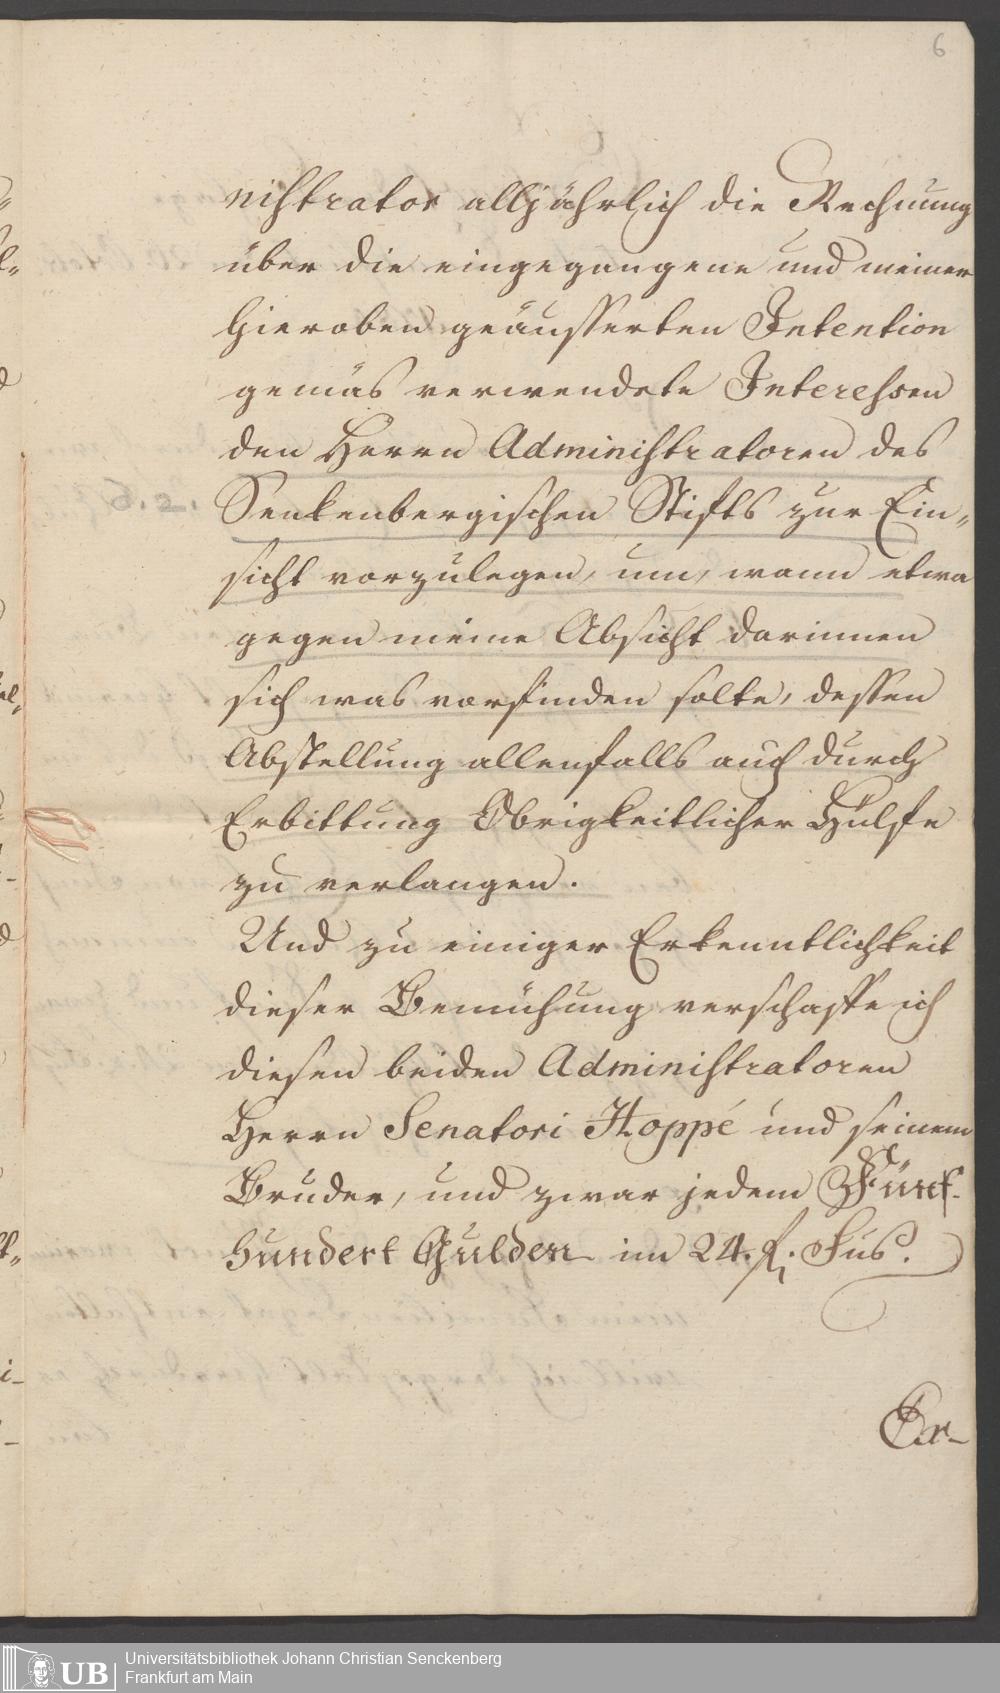 6
nistrator alljährlich die Rechnung
über die eingegangene und meiner
hieroben geäusserten Intention
gemäs verwendete Interessen
den Herrn Administratoren des
Senkenbergischen Stifts zur Ein„
sicht vorzulegen, um, wann etwa
gegen meine Absicht darinnen
sich was vorfinden solte, dessen
Abstellung allenfalls auch durch
Erbittung Obrigkeitlicher Hülfe
zu verlangen.
Und zu einiger Erkenntlichkeit
dieser Bemühung verschaffe ich
diesen beiden Administratoren
Herrn Senatori Hoppé und seinem
Bruder, und zwar jedem Fünf-
hundert Gulden im 24. f. Fus.
Er-
UB
Universitätsbibliothek Johann Christian Senckenberg
Frankfurt am Main